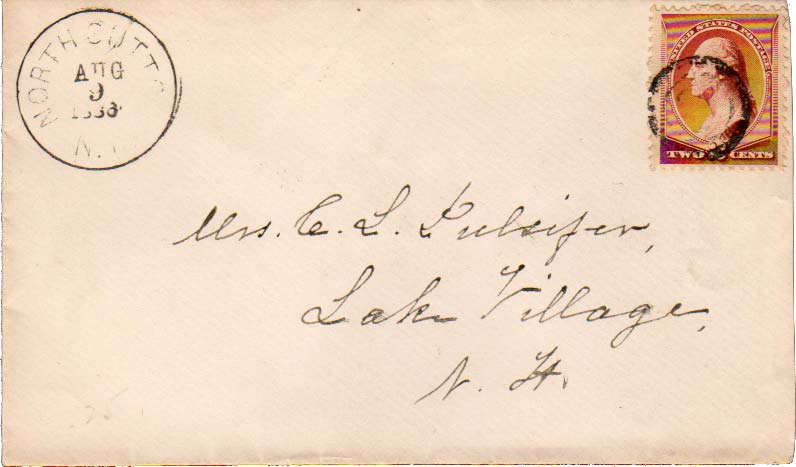 NORTH CUTTS
AUG
9
1886
N.
UNITED STATES POSTAGE
TWO CENTS
Mrs. C. L. Pulsifer,
Lake Village,
N. H.
.25